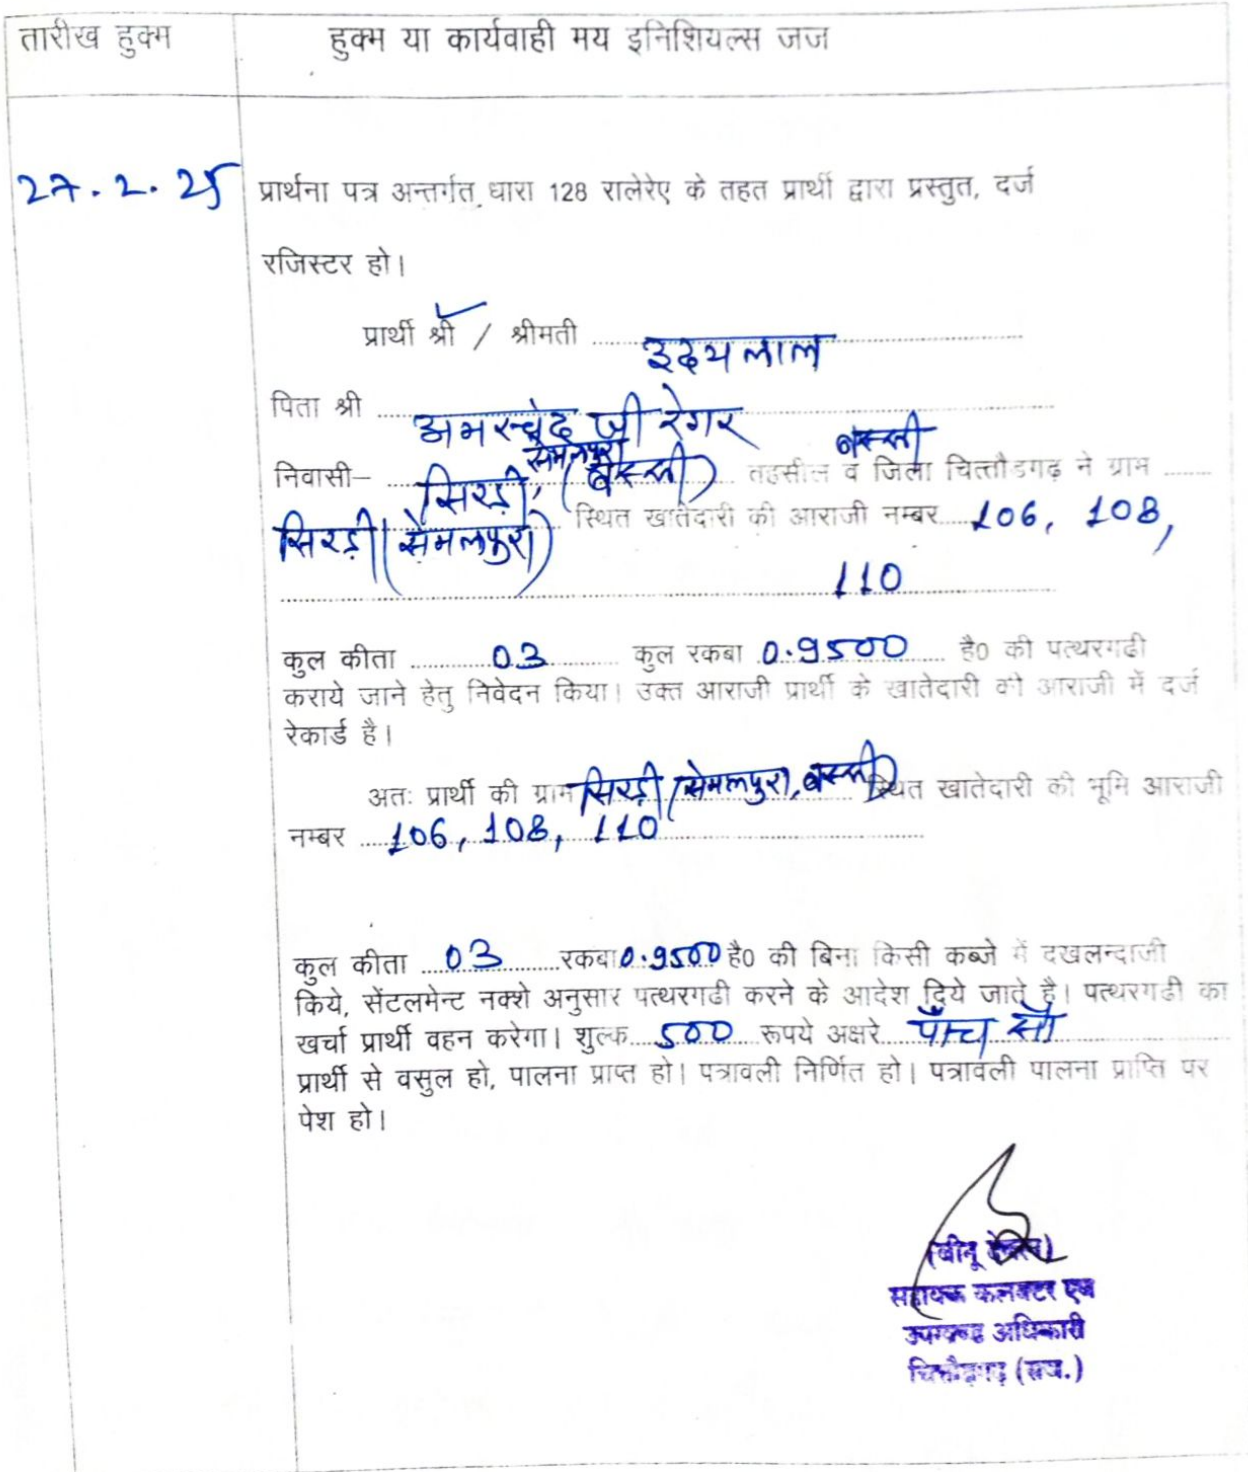 तारीख हुक्म
हुक्म या कार्यवाही मय इनिशियल्स जज
27.2.25
प्रार्थना पत्र अन्तर्गत धारा 128 रालेरेए के तहत प्रार्थी द्वारा प्रस्तुत, दर्ज
रजिस्टर हो।
प्रार्थी श्री / श्रीमती उदयलाल
पिता श्री अमरचंद जी रेगर
सेमलपुरा बस्सी
निवासी– सिरड़ी, (बस्सी) तहसील व जिला चित्तौडगढ़ ने ग्राम
सिरड़ी (सेमलपुरा) स्थित खातेदारी की आराजी नम्बर 106, 108,
110
कुल कीता 03 कुल रकबा 0.9500 है0 की पत्थरगढी
कराये जाने हेतु निवेदन किया। उक्त आराजी प्रार्थी के खातेदारी की आराजी में दर्ज
रेकार्ड है।
अतः प्रार्थी की ग्राम सिरड़ी (सेमलपुरा, बस्सी) स्थित खातेदारी की भूमि आराजी
नम्बर 106, 108, 110
कुल कीता 03 रकबा 0.9500 है0 की बिना किसी कब्जे में दखलन्दाजी
किये, सेंटलमेन्ट नक्शे अनुसार पत्थरगढी करने के आदेश दिये जाते है। पत्थरगढी का
खर्चा प्रार्थी वहन करेगा। शुल्क 500 रूपये अक्षरे पाँच सौ
प्रार्थी से वसुल हो, पालना प्राप्त हो। पत्रावली निर्णित हो। पत्रावली पालना प्राप्ति पर
पेश हो।
(बीनू देवल)
सहायक कलक्टर एवं
उपखण्ड अधिकारी
चित्तौड़गढ़ (राज.)